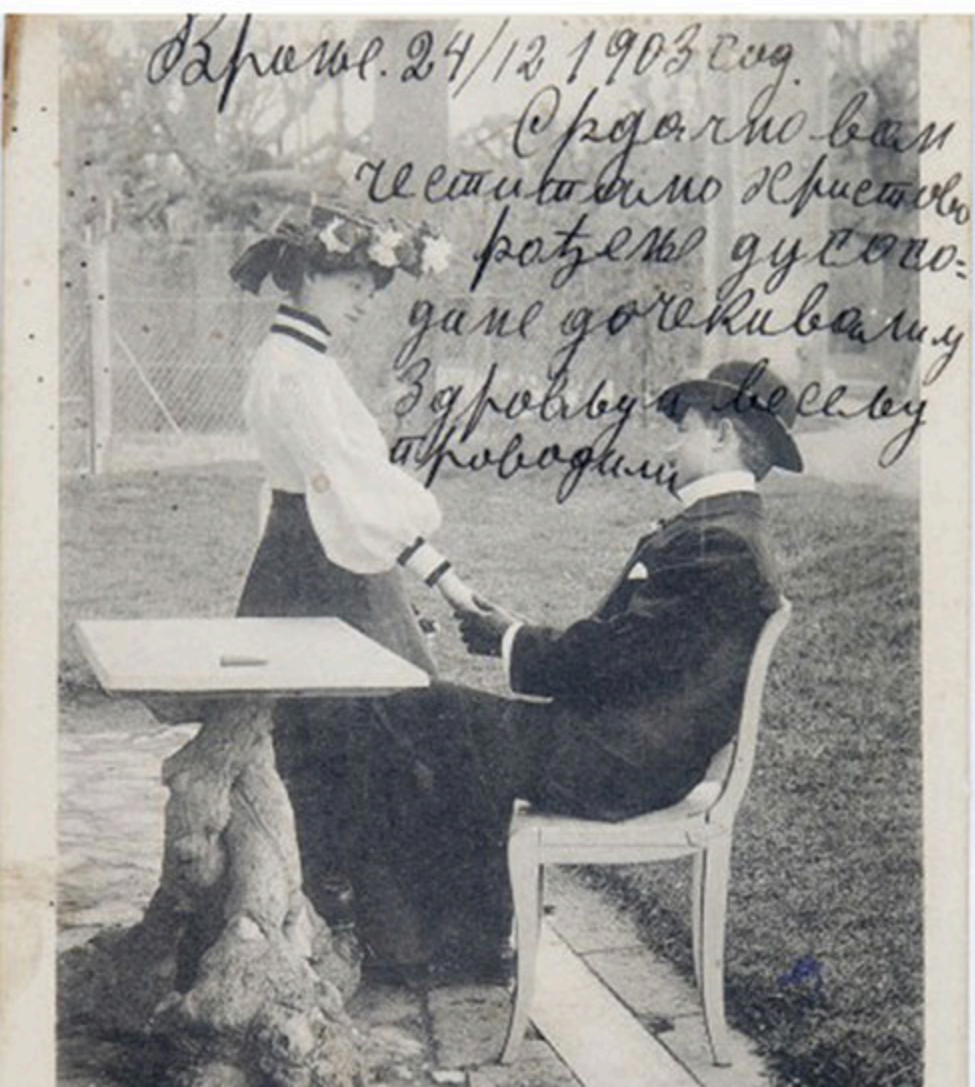 Врање. 24/12 1903 год.
Срдачно вам
честитамо Христово
рођење ду сосо-
дане дочекивали у
Здрављу и весељу
проводили